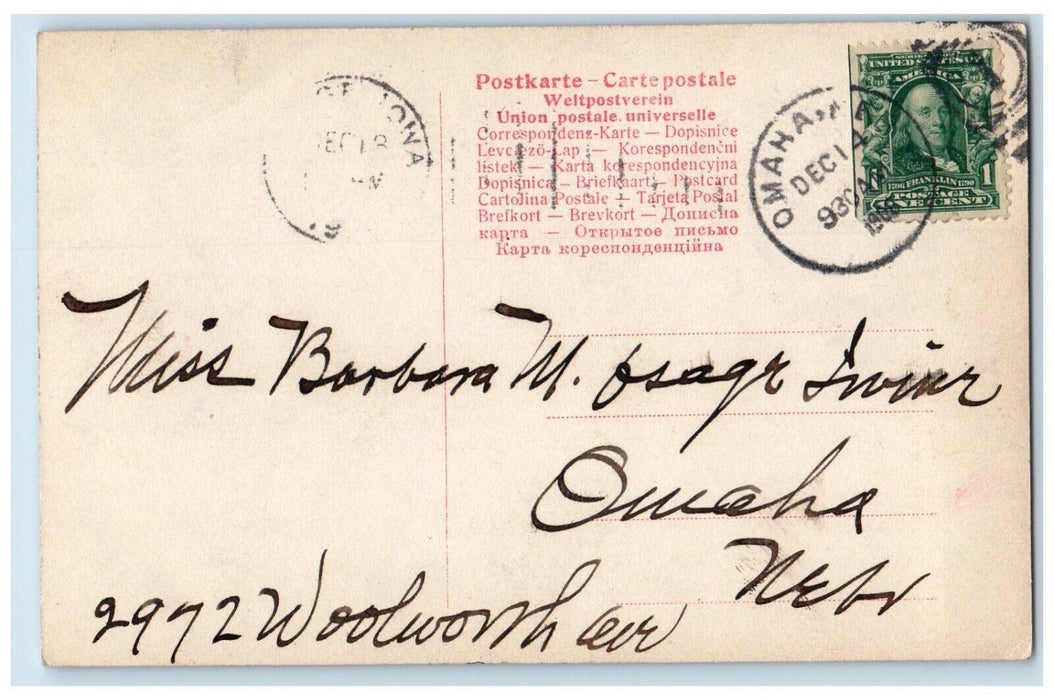 Postkarte – Carte postale
Weltpostverein
Union postale universelle
Correspondenz-Karte — Dopisnice
Levelező-Lap — Korespondenční
listek — Karta korespondencyjna
Dopisnica — Briefkaart — Postcard
Cartolina Postale — Tarjeta Postal
Brefkort — Brevkort — Дописна
карта — Открытое письмо
Карта кореспонденційна
IOWA
DEC 18
OMAHA, NE
DEC 1
930AM
UNITED STATES OF
AMERICA
1706 FRANKLIN 1790
POSTAGE 1
ONE CENT
Miss Barbara M.
Omaha
Nebr
2972 Woolworth ave